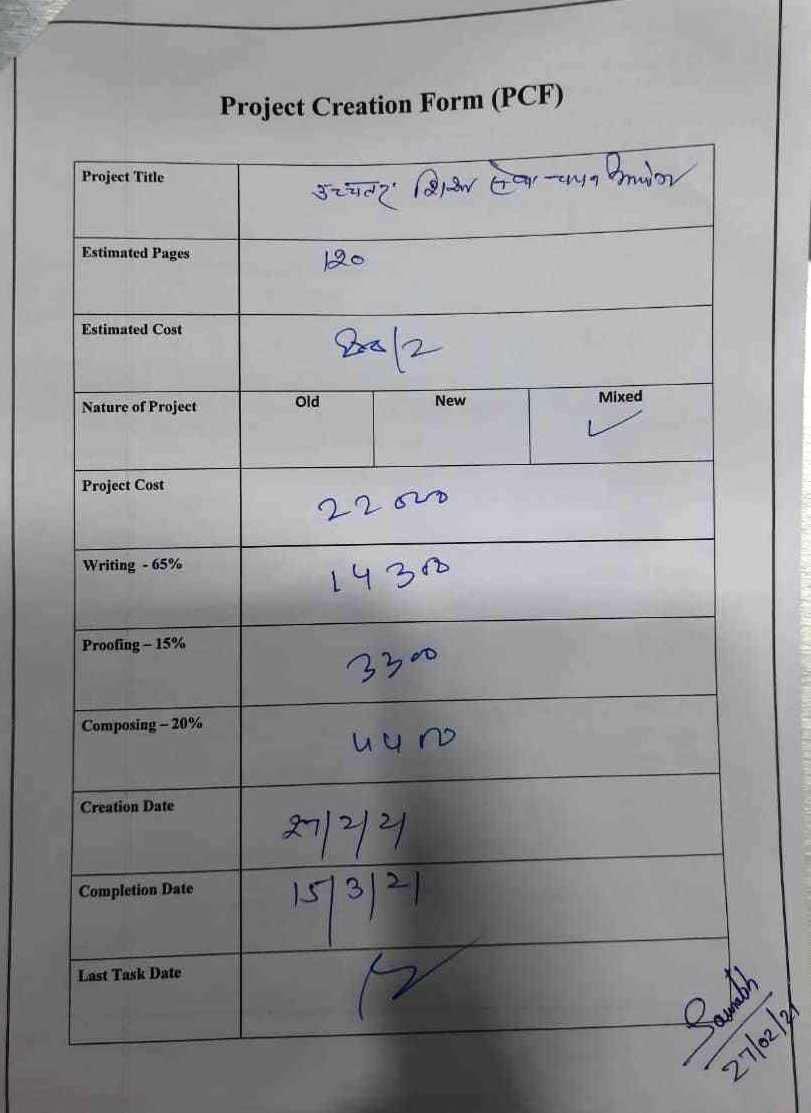 Project Creation Form (PCF)
Project Title उच्चतर शिक्षा सेवा चयन आयोग
Estimated Pages 120
Estimated Cost
Nature of Project Old New Mixed ✓
Project Cost 22000
Writing - 65% 14300
Proofing – 15% 3300
Composing – 20% 4400
Creation Date 27/2/21
Completion Date 15/3/21
Last Task Date
Saurabh
27/02/21